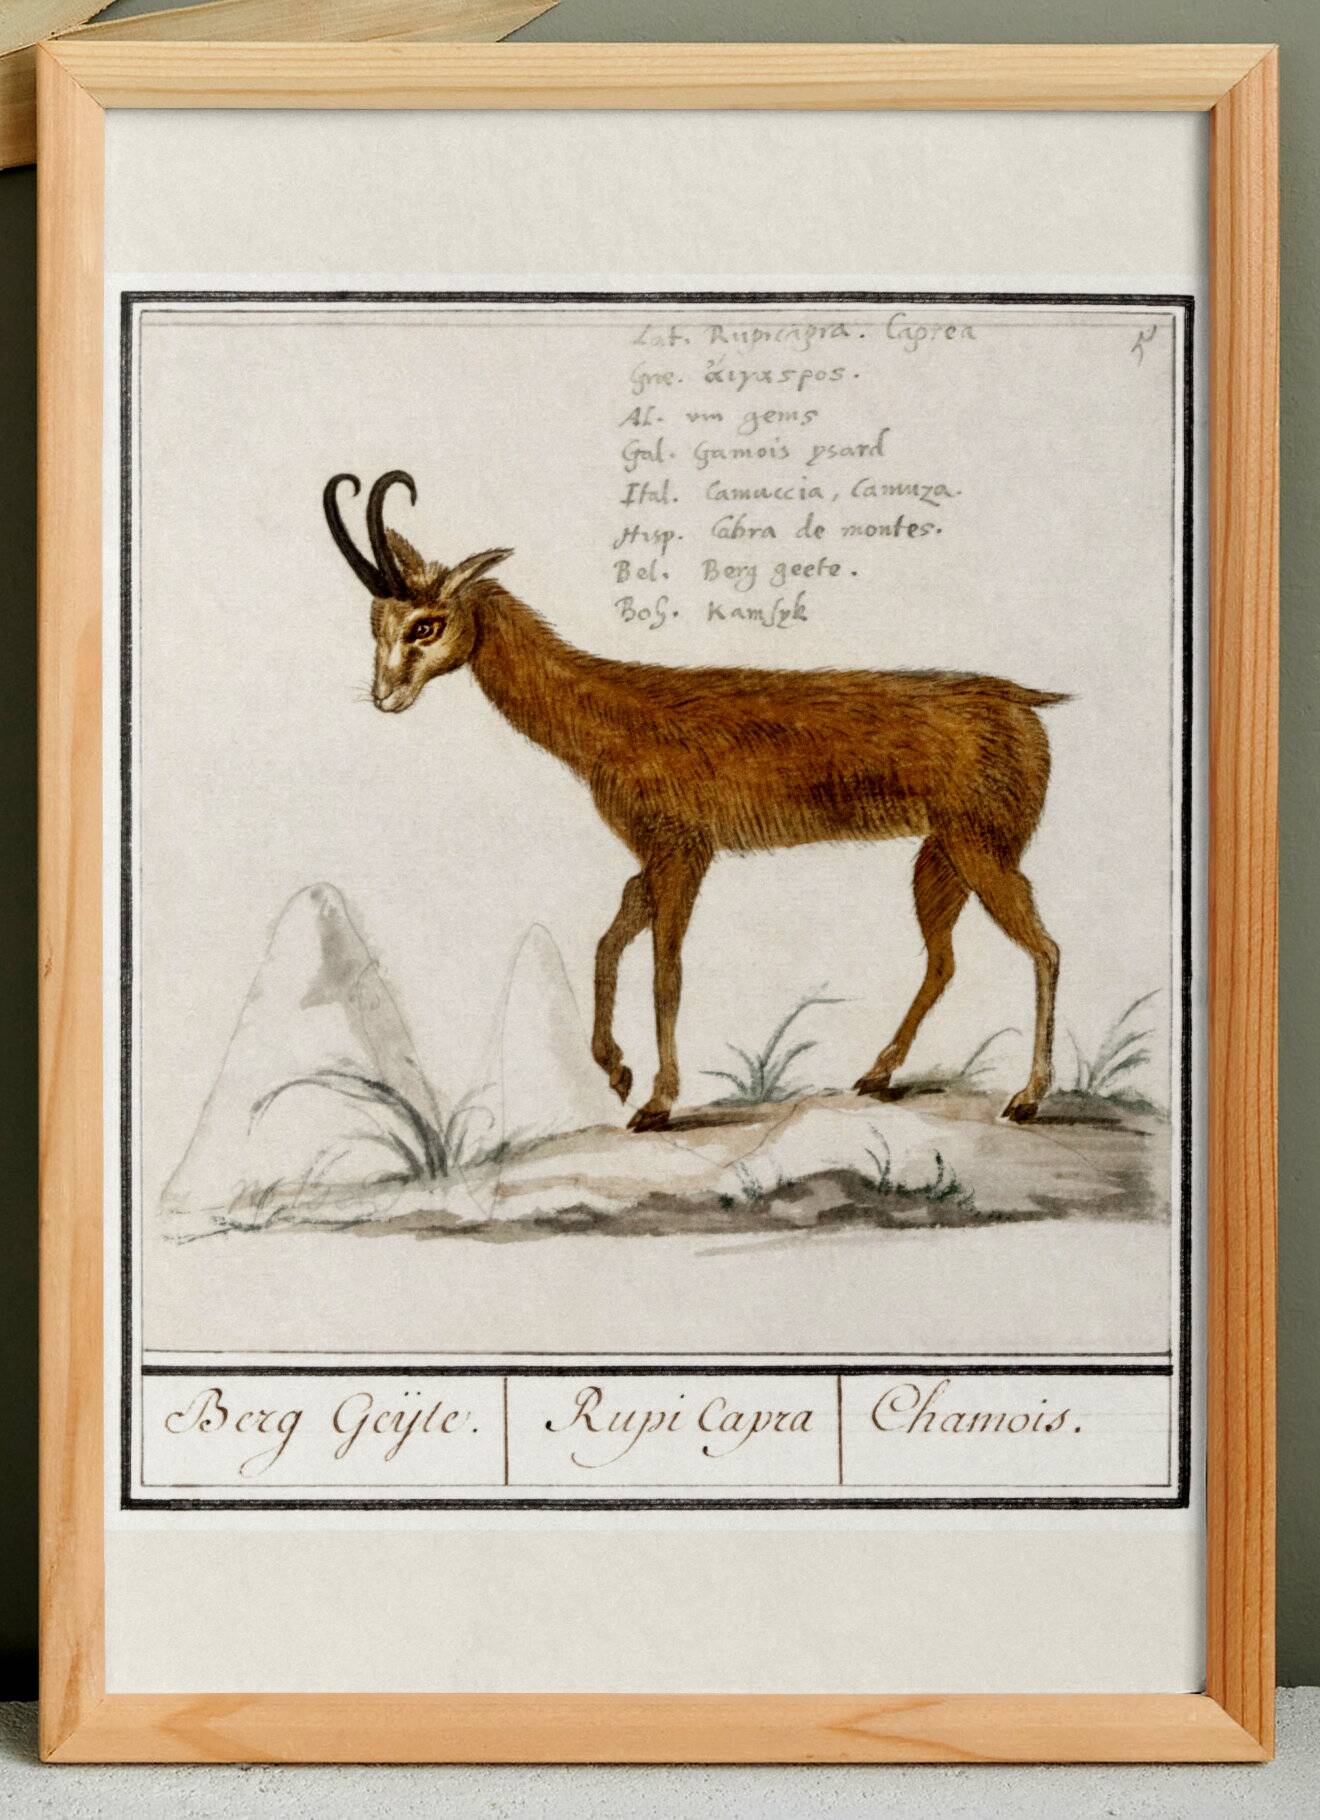 Lat. Rupicapra. Caprea
5
Græ. ἀιγασρος.
Al. vm gems
Gal. Gamois ysard
Ital. Camuccia, Camuza.
Hisp. Cabra de montes.
Bel. Berg geete.
Boh. Kamſyk
Berg Geÿte.
Rupi Capra
Chamois.